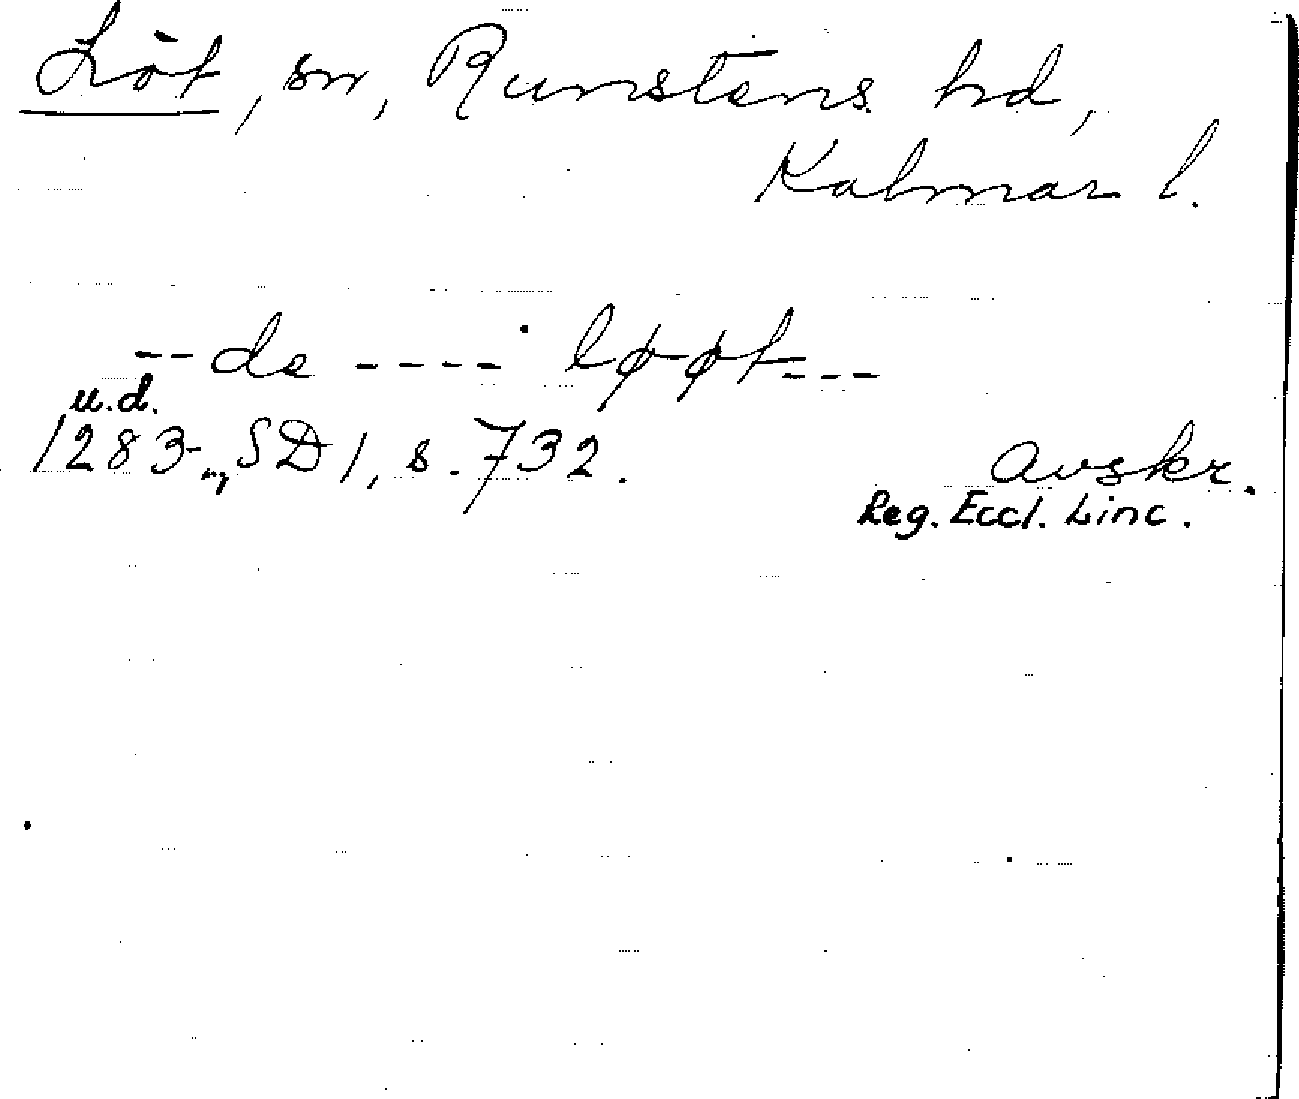 Löt, sn, Runstens hd,
Kalmar l.
-- de ---- løøt ---
u.d.
1283 SD 1, s. 732.
avskr.
Reg. Eccl. Linc.